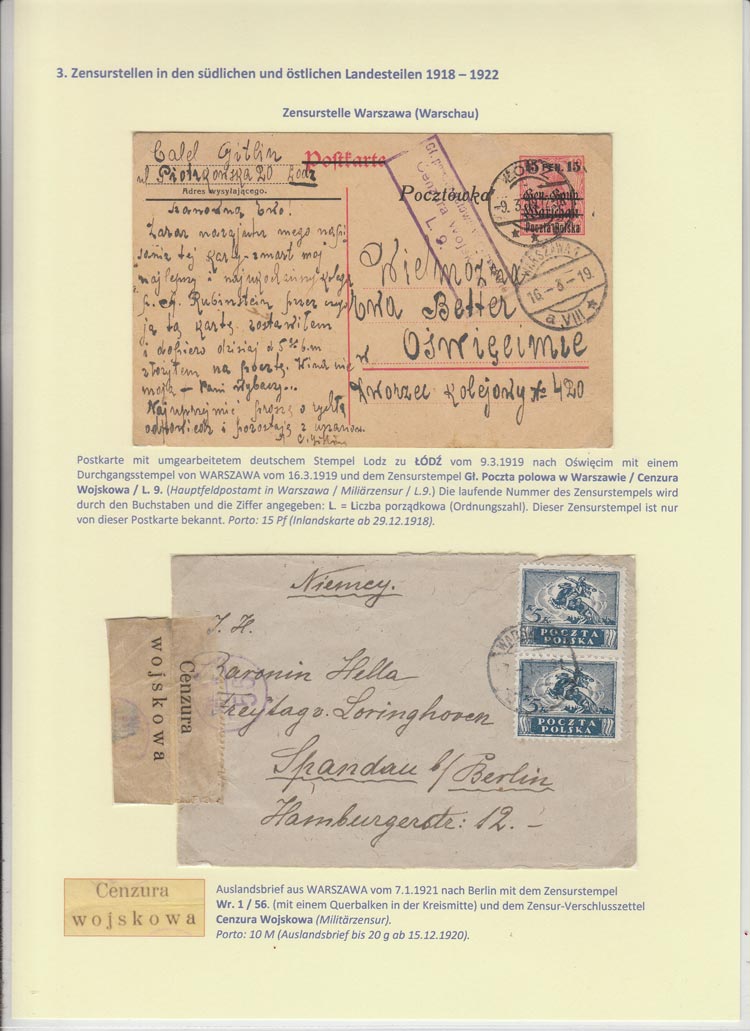 3. Zensurstellen in den südlichen und östlichen Landesteilen 1918 – 1922
Zensurstelle Warszawa (Warschau)
Calel Gitlin
ul Piotrkowska 20 Łódz
Adres wysyłającego.
Postkarte
Pocztówka
Cenzura Wojsk
L. 9.
15 PFG. 15
Gen.-Gouv.
Warschau
Poczta Polska
ŁÓDŹ
9.3.
WARSZAWA 1
16.-3-19.
a VIII
Szanowna
mego napi-
sania tej karty zmarł mój
najlepszy i
p. Rubinstein przez
ją tą kartę zostawiłem
i dopiero dzisiaj
złożyłem na pocztę. Wina nie
moja – Pani wybaczy...
Najuprzejmiej proszę o rychłą
odpowiedź i pozostaję z uszanow.
Gitlin
Wielmożna
Ewa Better
w Oświęcimie
Dworzec kolejowy № 420
Postkarte mit umgearbeitetem deutschem Stempel Lodz zu ŁÓDŹ vom 9.3.1919 nach Oświęcim mit einem
Durchgangsstempel von WARSZAWA vom 16.3.1919 und dem Zensurstempel Gł. Poczta polowa w Warszawie / Cenzura
Wojskowa / L. 9. (Hauptfeldpostamt in Warszawa / Miliärzensur / L.9.) Die laufende Nummer des Zensurstempels wird
durch den Buchstaben und die Ziffer angegeben: L. = Liczba porządkowa (Ordnungszahl). Dieser Zensurstempel ist nur
von dieser Postkarte bekannt. Porto: 15 Pf (Inlandskarte ab 29.12.1918).
Niemcy.
I. H.
Baronin Hella
Freytag v. Loringhoven
Spandau b/Berlin
Hamburgerstr: 12.-
5
POCZTA
POLSKA
5
POCZTA
POLSKA
WARS
Cenzura
wojskowa
Cenzura
wojskowa
Auslandsbrief aus WARSZAWA vom 7.1.1921 nach Berlin mit dem Zensurstempel
Wr. 1 / 56. (mit einem Querbalken in der Kreismitte) und dem Zensur-Verschlusszettel
Cenzura Wojskowa (Militärzensur).
Porto: 10 M (Auslandsbrief bis 20 g ab 15.12.1920).